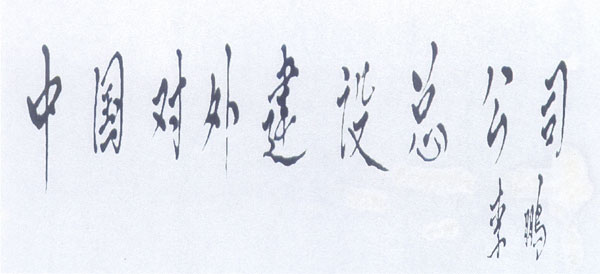 中国对外建设总公司
李鹏